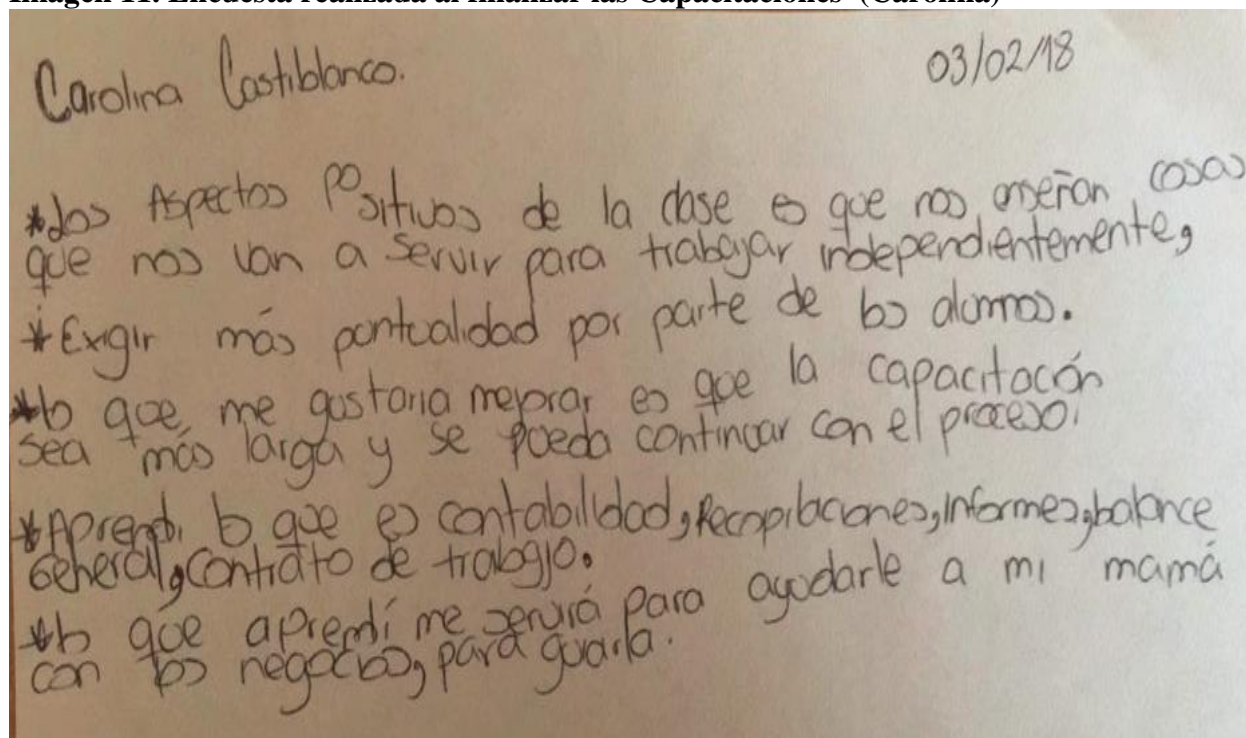 Imagen 11. Encuesta realizada al finalizar las Capacitaciones (Carolina)
Carolina Castiblanco. 03/02/18
*Los Aspectos Positivos de la clase es que nos enseñan cosas
que nos van a servir para trabajar independientemente,
*Exigir más pontualidad por parte de los alomnos.
*lo que, me gustaria mejorar es que la capacitación
sea más larga y se pueda continuar con el proceso.
*Aprendi lo que es contabilidad, Recopilaciones, Informes, balance
General, Contrato de trabajo.
*lo que aprendí me servirá para ayudarle a mi mamá
con los negocios, para guiarla.